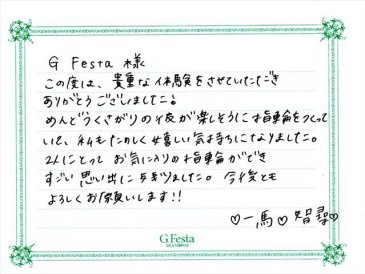 G Festa 様
この度は、貴重な体験をさせていただき
ありがとうございました!
めんどうくさがりの彼が楽しそうに指輪をつくって
いて、私もたのしく嬉しい気持ちになりました。
2人にとって お気に入りの指輪ができ
すごい思い出に残りました。 今後とも
よろしくお願いします!!
♡一馬♡智尋♡
G.Festa